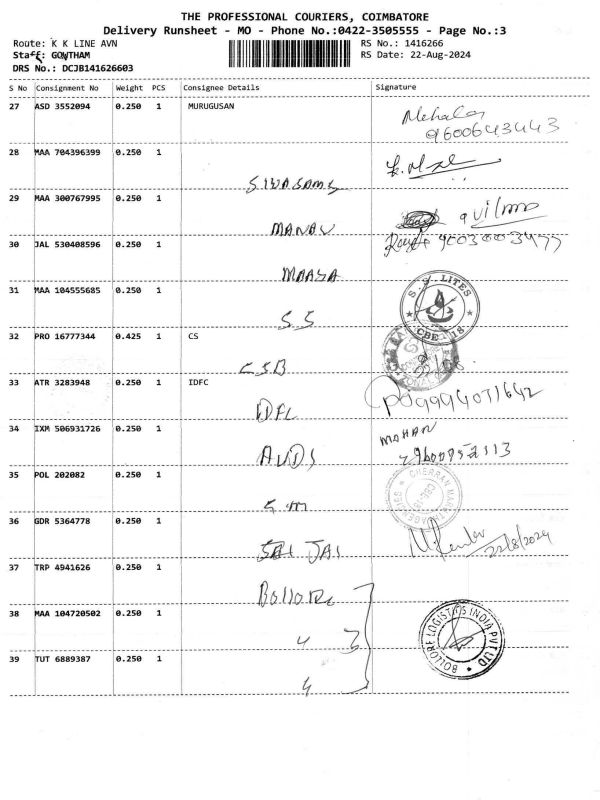 THE PROFESSIONAL COURIERS, COIMBATORE
Delivery Runsheet - MO - Phone No.:0422-3505555 - Page No.:3
Route: K K LINE AVN RS No.: 1416266
Staff: GOWTHAM RS Date: 22-Aug-2024
DRS No.: DCJB141626603
S No Consignment No Weight PCS Consignee Details Signature
27 ASD 3552094 0.250 1 MURUGUSAN
9600643443
28 MAA 704396399 0.250 1
29 MAA 300767995 0.250 1
MANAV
30 JAL 530408596 0.250 1 9003003477
MAASA
31 MAA 104555685 0.250 1
S.S. LITES
CBE 18
S.S
32 PRO 16777344 0.425 1 CS
CSB
33 ATR 3283948 0.250 1 IDFC
34 IXM 506931726 0.250 1 MOHAN
35 POL 202082 0.250 1
S m
36 GDR 5364778 0.250 1
SAI JAI 22/8/2024
37 TRP 4941626 0.250 1
38 MAA 104720502 0.250 1
3
BOLLORE LOGISTICS INDIA PVT LTD
39 TUT 6889387 0.250 1